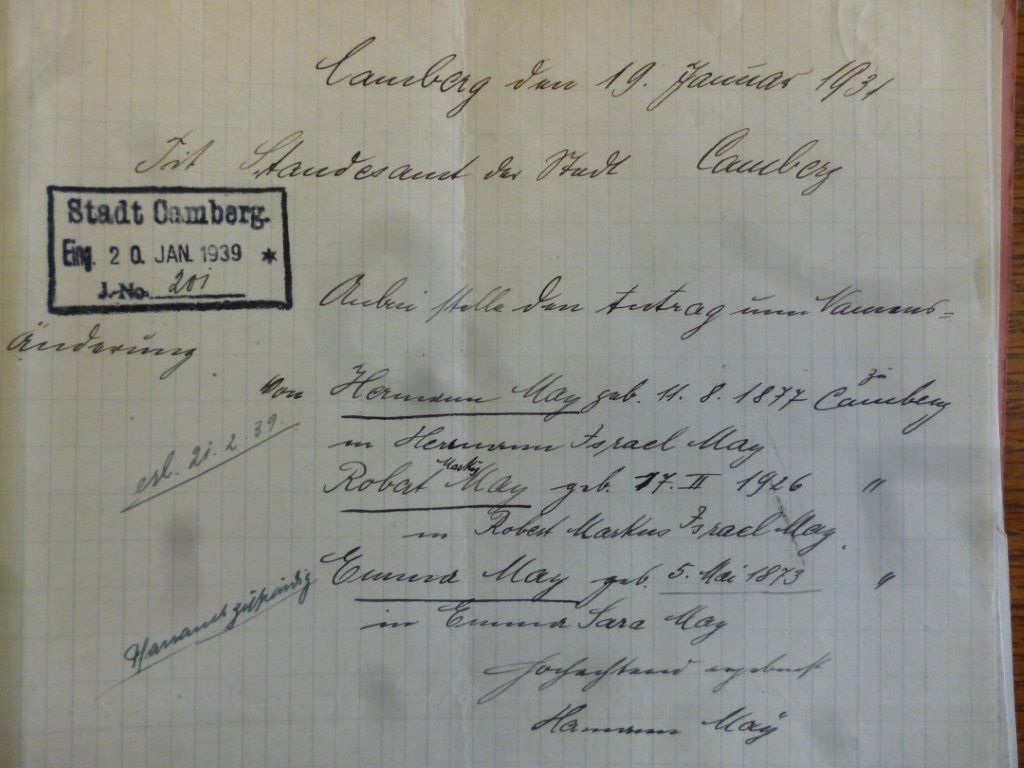 Camberg den 19. Januar 1931
Tit Standesamt der Stadt Camberg
Stadt Camberg.
Eing. 20. JAN. 1939 *
J.-No. 201
Anbei stelle den Antrag um Namens=
Änderung
von Hermann May geb. 11. 8. 1877 zu Camberg
in Hermann Israel May
erl. 21. 2. 39.
Robert Markus May geb. 17. II 1926 "
in Robert Markus Israel May.
Emma May geb. 5. Mai 1873 "
in Emma Sara May
hochachtend ergebenst
Hermann May